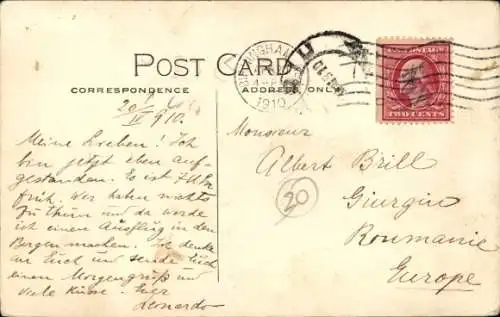 POST CARD
CORRESPONDENCE
ADDRESS ONLY
1910
TWO CENTS
20/IV 910.
Meine Lieben! Ich
bin jetzt eben auf-
gestanden. Es ist 7 Uhr
früh. Wir haben nichts
zu thun und da werde
ich einen Ausflug in den
Bergen machen. Ich denke
an Euch und sende Euch
einen Morgengruß und
viele Küsse. Euer
Leonardo
Monsieur
Albert Brill
Giurgiu
Roumanie
Europe
20